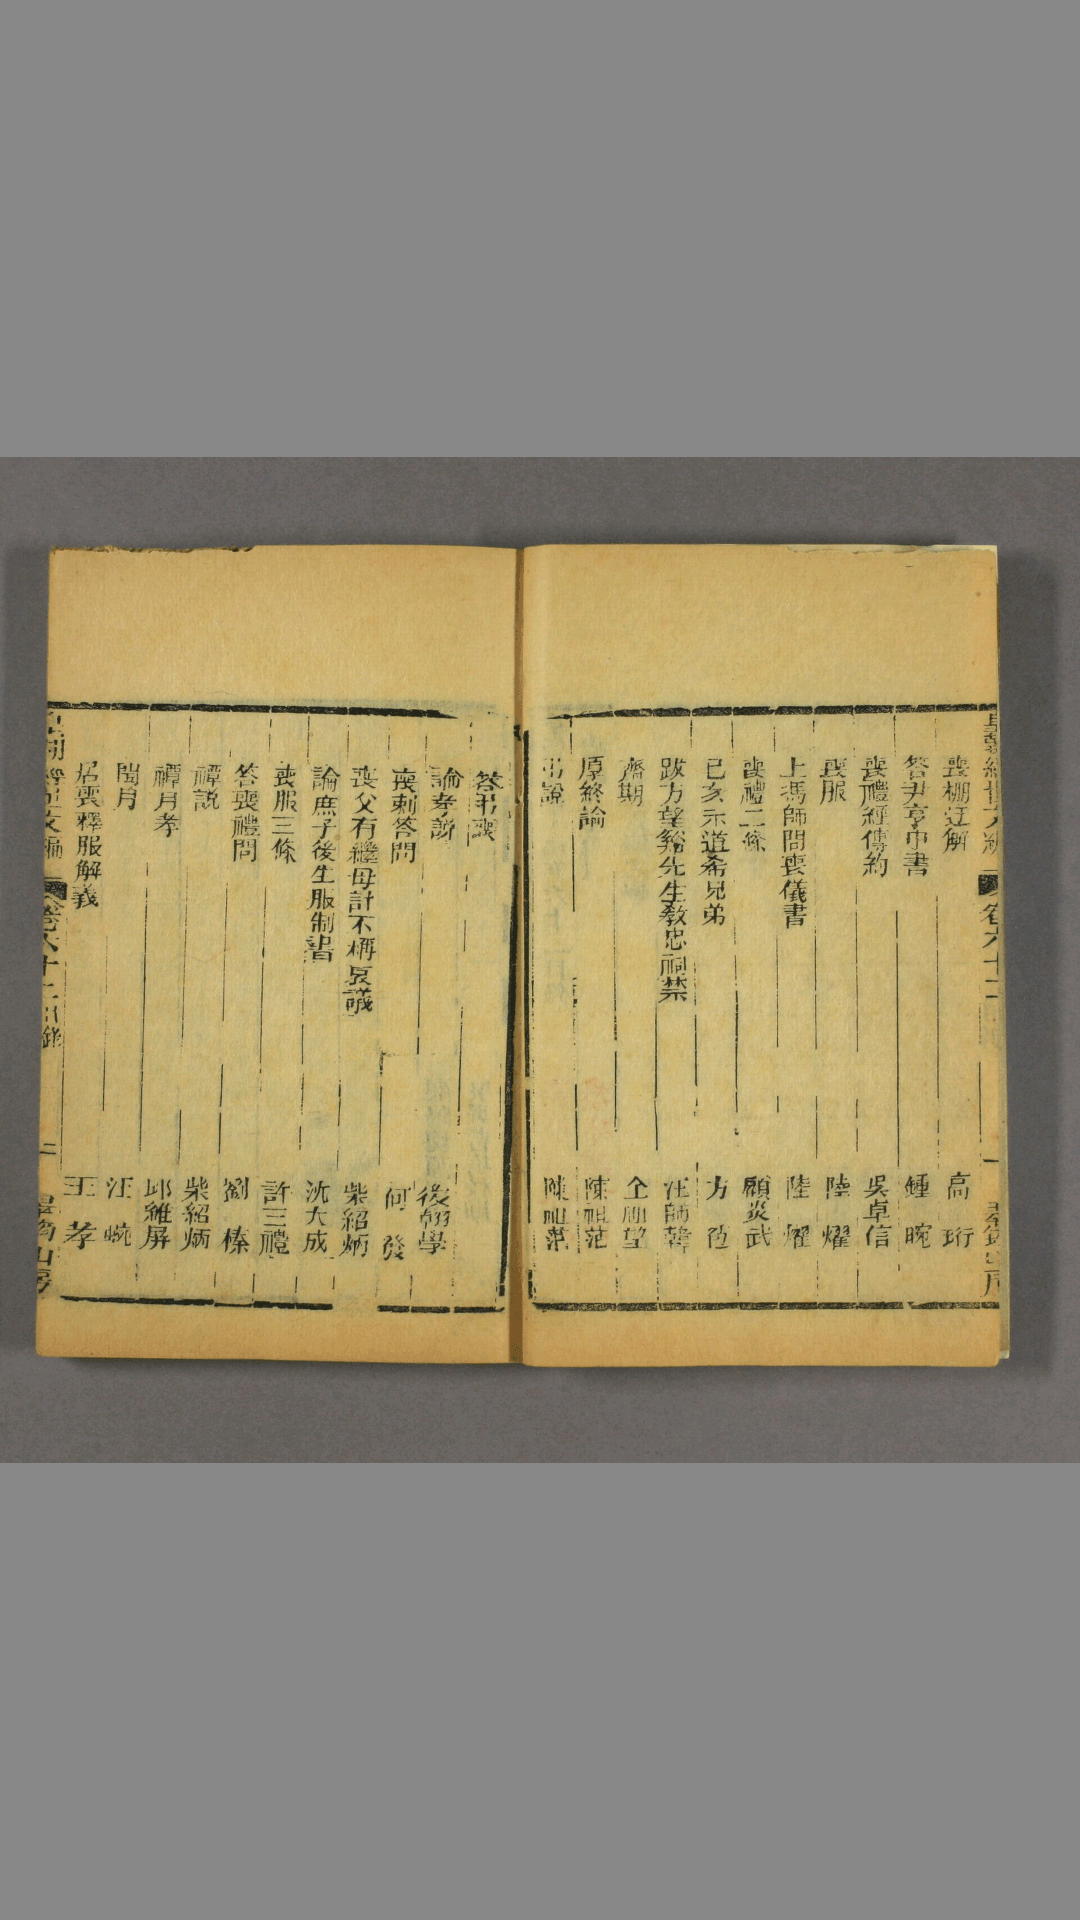 喪棚迂解 高珩
答尹亨巾書 鍾晼
喪禮經傳約 吳卓信
喪服 陸燿
上馮師問喪儀書 陸燿
喪禮二條 顧炎武
己亥示道希兄弟 方苞
跋方望谿先生敎忠祠禁 汪師韓
齊期 全祖望
厚終論 陳祖范
弔說 陳祖范
答弔喪
論奔喪 後學
喪刺答問 何發
喪父有繼母訃不稱哀議 柴紹炳
論庶子後生服制書 沈大成
喪服三條 許三禮
答喪禮問 劉榛
禫說 柴紹炳
禫月孝 邱維屏
閏月 汪婉
居喪釋服解義 王孝
皇朝經世文編 卷六十二目錄 二